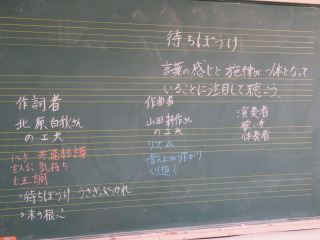 待ちぼうけ
言葉の感じと旋律が一体となって
いることに注目して聴こう。
作詞者
北原白秋さん
の工夫
共通
主人公 気持ち
七五調
待ちぼうけ
木の根っこ
作曲者
山田耕筰さん
の工夫
リズム
音の上がり下がり
くり返し
演奏者
歌い手
伴奏者